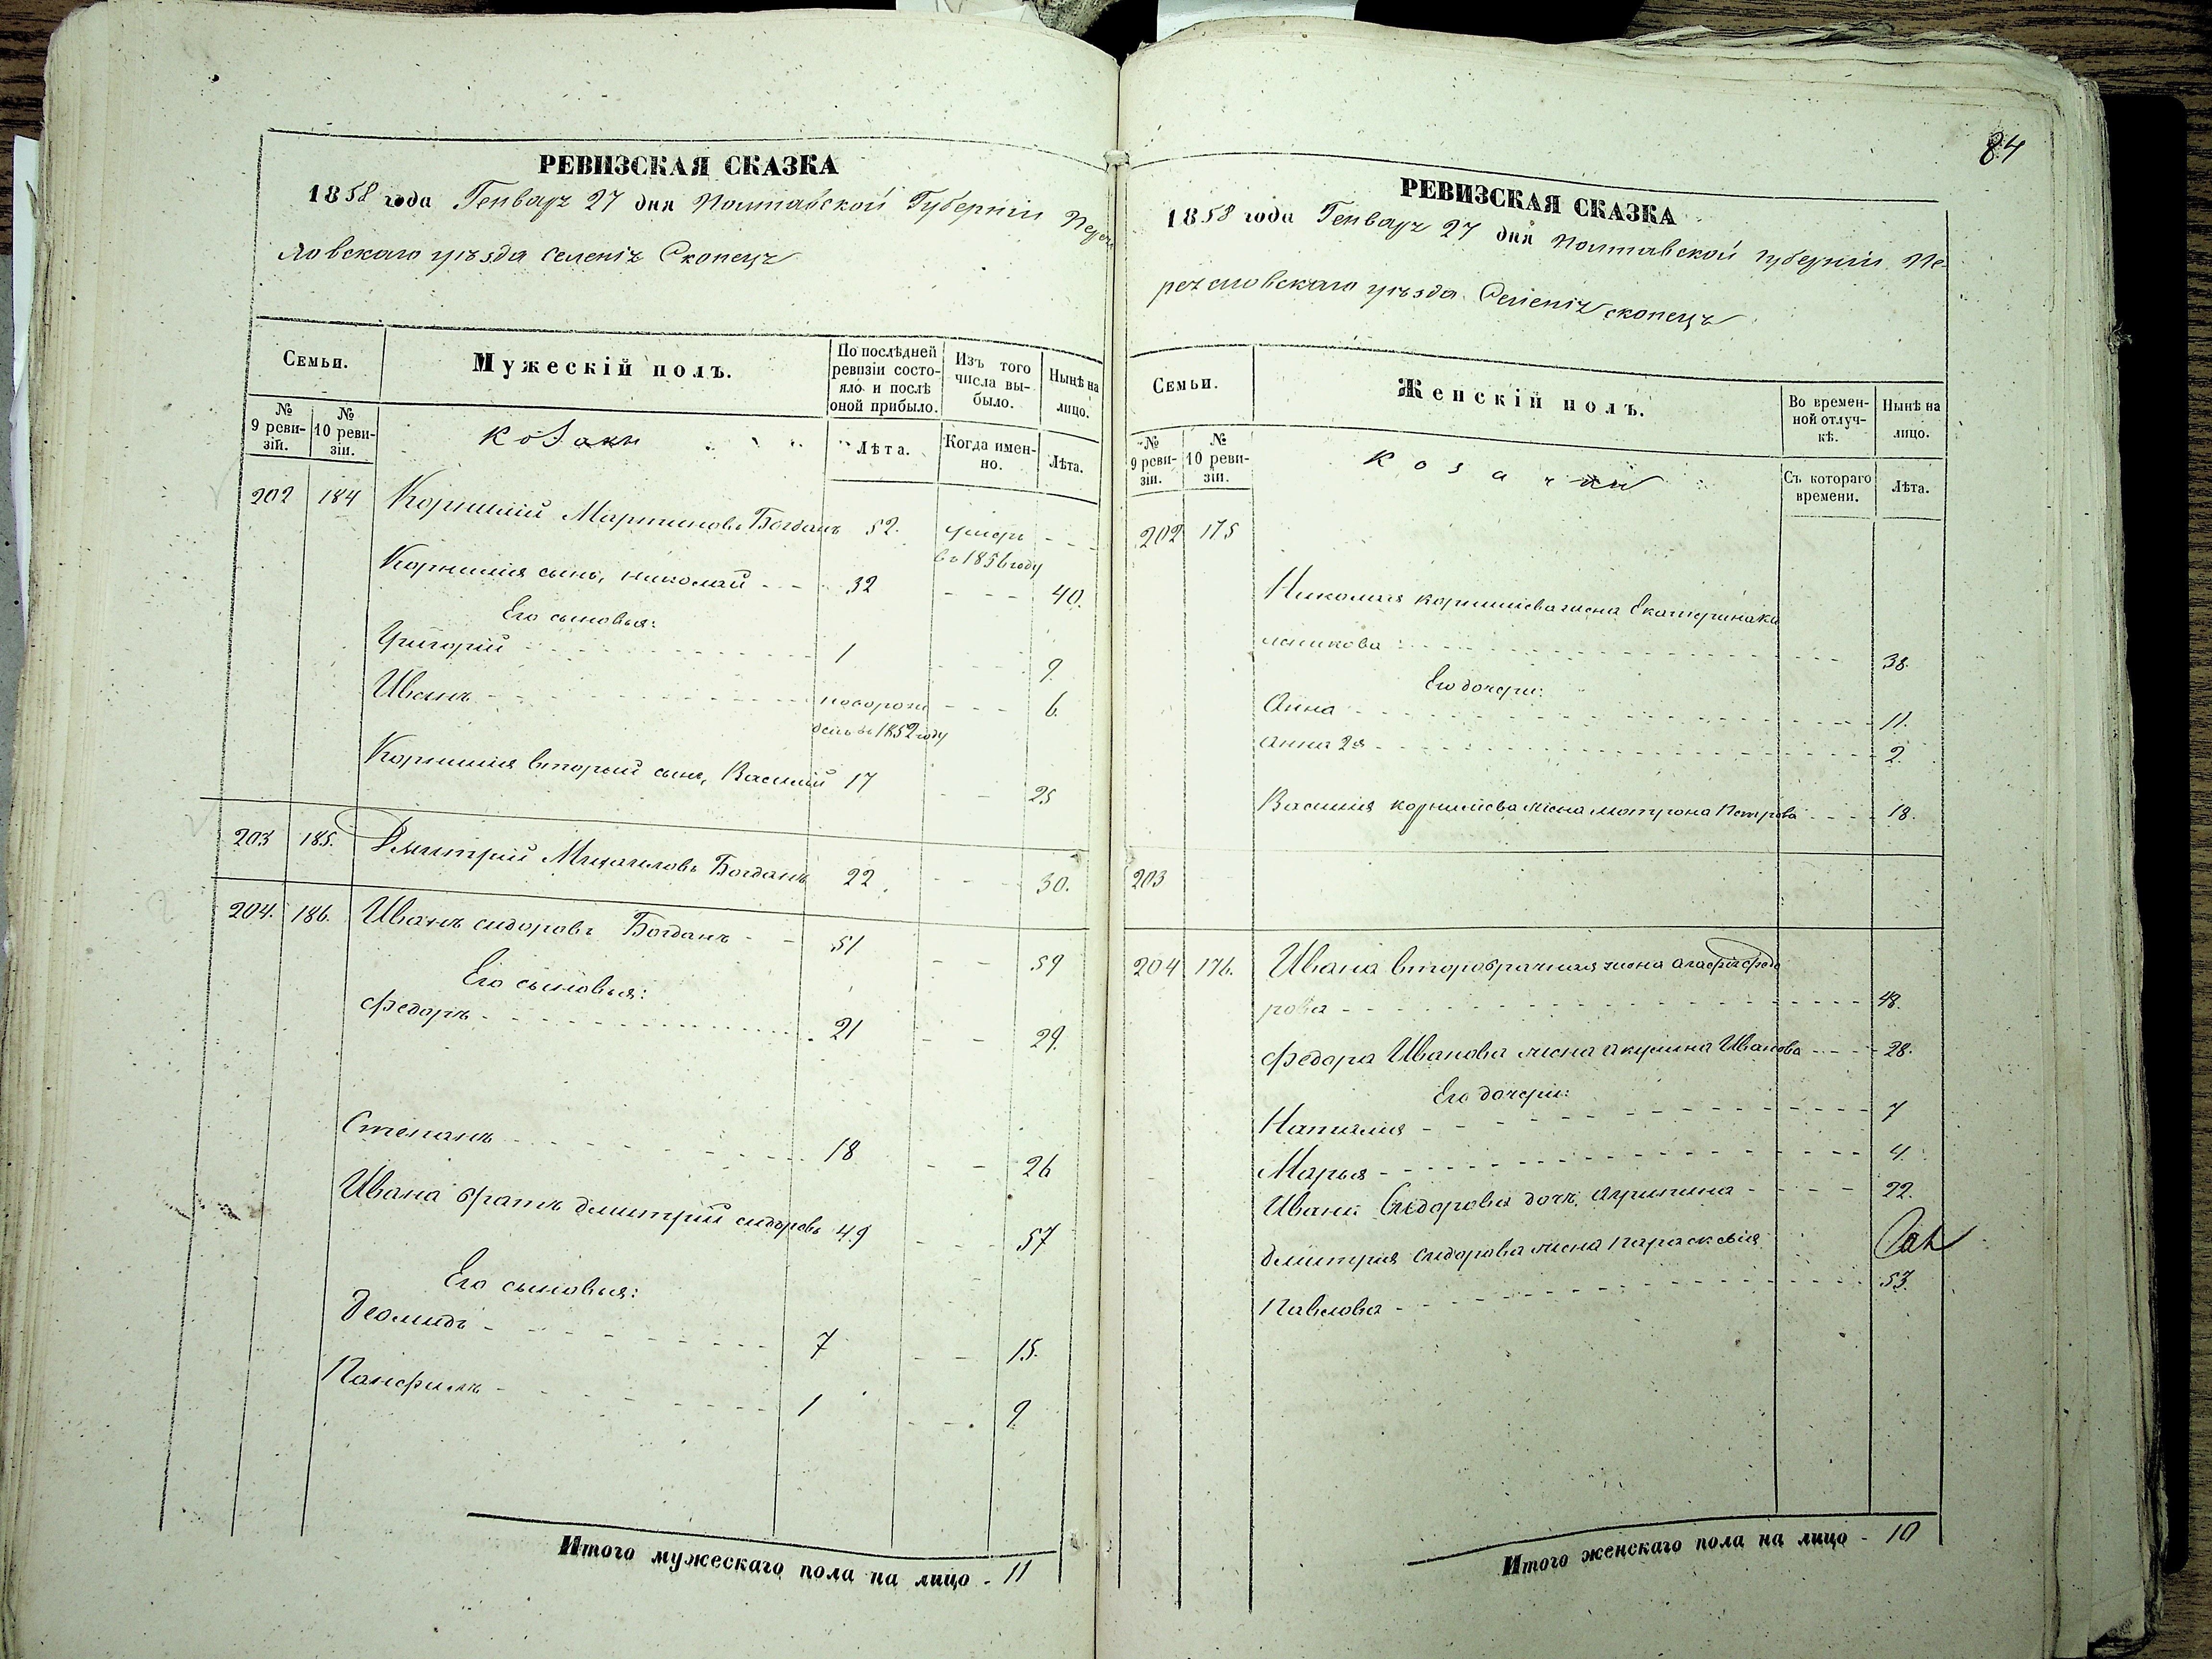 РЕВИЗСКАЯ СКАЗКА
1858 года Генваря 27 дня Полтавской Губерніи Перея
ловскаго уѣзда селенія Скопецъ
Семьи.
Мужескій полъ.
По послѣдней ревизіи состояло и послѣ оной прибыло.
Изъ того числа выбыло.
Нынѣ на лицо.
№ 9 ревизіи.
№ 10 ревизіи.
Козаки
Лѣта.
Когда именно.
Лѣта.
202 184 Корнилій Мартиновъ Богданъ 52. умеръ - - -
въ 1856 году
Корнилія сынъ, николай - - - 32 - - - 40.
Его сыновья:
Григорій - - - 1 - - - 9.
Иванъ - - - новорож - - - 6.
денъ въ 1852 году
Корнилія вторый сынъ, Василій 17 - - 25
203 185. Дмитрій Михаиловъ Богданъ 22. - - - 30.
204. 186. Иванъ сидоровъ Богданъ - - 51 - - 59
Его сыновья:
Федоръ - - - 21 - - 29.
Степанъ - - - 18 - - 26
Ивана братъ дмитрій сидоровъ 49 - - - 57
Его сыновья:
Деомидъ - - - 7 - - 15.
Панфилъ - - - 1 - - 9.
Итого мужескаго пола на лицо - 11
84
РЕВИЗСКАЯ СКАЗКА
1858 года Генваря 27 дня Полтавской губерніи Пе-
реяловскаго уѣзда Селенія скопецъ
Семьи.
Женскій полъ.
Во временной отлучкѣ.
Нынѣ на лицо.
№ 9 ревизіи.
№ 10 ревизіи.
Козачки
Съ котораго времени.
Лѣта.
202 175
Николая корниліева жена Екатерина
- - - 38.
Его дочери:
Анна - - - 11.
Анна 2я - - - 2.
Василия корнилиева жена мотрона Петрова - - - 18.
203
204 176. Ивана второбрачная жена Агафія федо
рова - - - 48.
Федора Иванова жена Акулина Иванова - - - 28.
Его дочери:
Наталия - - - 7
Марья - - - 4.
Ивана Сидорова дочь, Агрипина - - - 22.
Дмитрия сидорова жена параскевія
Павлова - - - 53.
Итого женскаго пола на лицо - 10